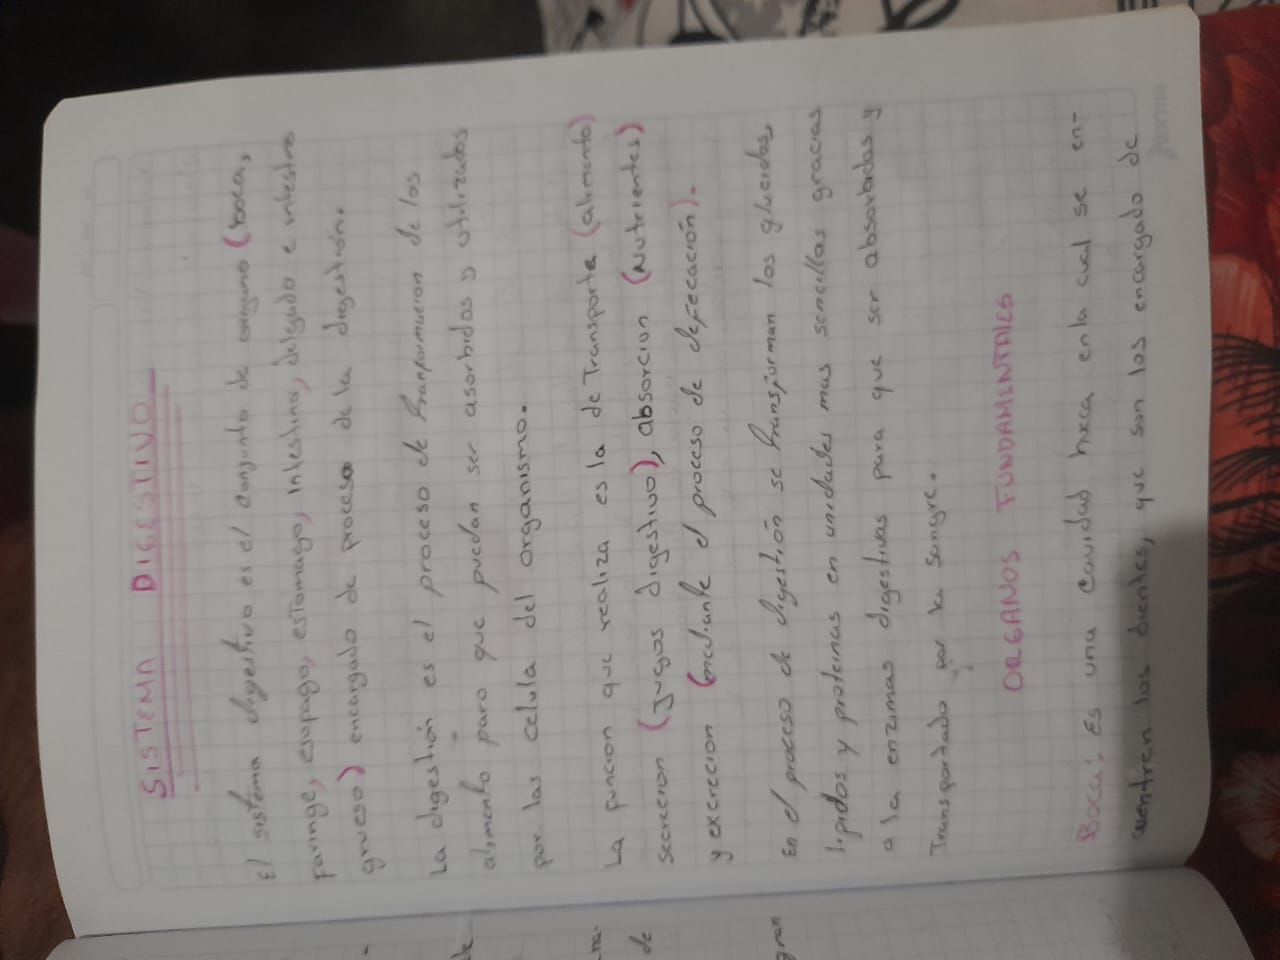 SISTEMA DIGESTIVO
El sistema digestivo es el conjunto de organo (boca,
faringe, esofago, estomago, intestino, delgado e intestino
grueso) encargado de proceso de la digestión.
La digestión es el proceso de tranformacion de los
alimento para que puedan ser asorbidos y utilizados
por las celula del organismo.
La funcion que realiza es la de Transporte (alimento)
secrecion (jugos digestivo), absorcion (Nutrientes)
y excrecion (mediante el proceso de defecación).
En el proceso de digestión se transforman los glucidos,
lipidos y proteinas en unidades mas sencillas gracias
a la enzimas digestivas para que ser absorbidas y
Transportado por la sangre.
ORGANOS FUNDAMENTALES
Boca: Es una cavidad hueca en la cual se en-
cuentren los dientes, que son los encargado de